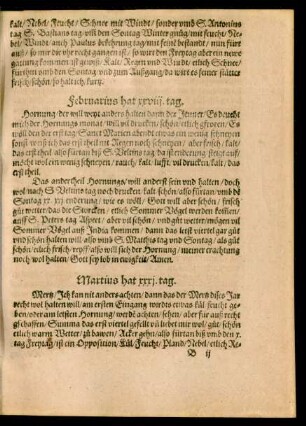 kalt/ Nebel/ Feucht/ Schnee mit Windt/ sonder umb S. Antonius
tag S. Bastians tag/ will den Sontag Winter gnůg/ mit feucht/ Ne-
bel/ Windt/ auch Paulus bekehrung tag/ mit seiner bestandt/ nun fürt
auß/ so mir die uhr recht gangen ist/ so wirt den Freytag aber ein newe
gattung kommen ist gewiß/ Kalt/ Regen und Windt/ etlich Schnee/
fürthin umb den Sontag und zum Außgang/ da wirt es seiner stätts
frisch/ schön/ so halt ich/ kurtz.
Februarius hat xxviij. tag.
Hornung/ der will wept anders halten dann der Jenner/ Es deucht
mich der Hornungs monat/ will vil drucken/ schön/ etlich gfroren/ Es
will den der erst tag Sanct Marien abendt etwas ein wenig schneyen
das erst theil also fürtan biß S. Veltins tag
noch ein wenig schneyen/ rauch/ kalt/ lufft/ vil drucken/ kalt/ das
erst theil.
Das ander theil Hornungs/ will anderst sein und halten/ doch
wol nach S. Veltins tag noch drucken/ kalt/ schön/ also fürtan umb die
Sontag xx. xxj enderung/ wie es wöll/ Gott will aber schön/ frisch
gůt wetter/ das die Storcken/ etlich Sommer Vögel werden kommen/
auff S. Peters tag/ aber vil schön/ und gůt wetter/ mögen vil
Sommer Vögel auß India kommen/ dann das letst viertel gar
und schön halten will/ also umb S. Mathis tag und Sontag/ als gůt
schön/ etlich frisch/ reyff/ also will sich der Hornung/ meiner erachtung
noch wol halten/ Gott sey lob in ewigkeit/ Amen.
Martius hat xxxj. tag.
Mertz/ Ich kan nit anders achten/ dann das der Mertz dises Jar
recht wol halten will/ am ersten Eingang wurdt es etwas kül feucht ge-
ben/ oder am letsten Hornung/ werde achten/ sehen/ aber für auß recht
gschaffen/ Summa das erst viertel gefelt mir vil wol/ gůt/ schön
etlich warm Wetter/ zů bawen/ Acker gehn/ also fürtan biß umb den x.
tag Freytag/ ist ein Opposition/ Kül/ Feucht/ Pland/ Nebel/ etlich Re-
B ij